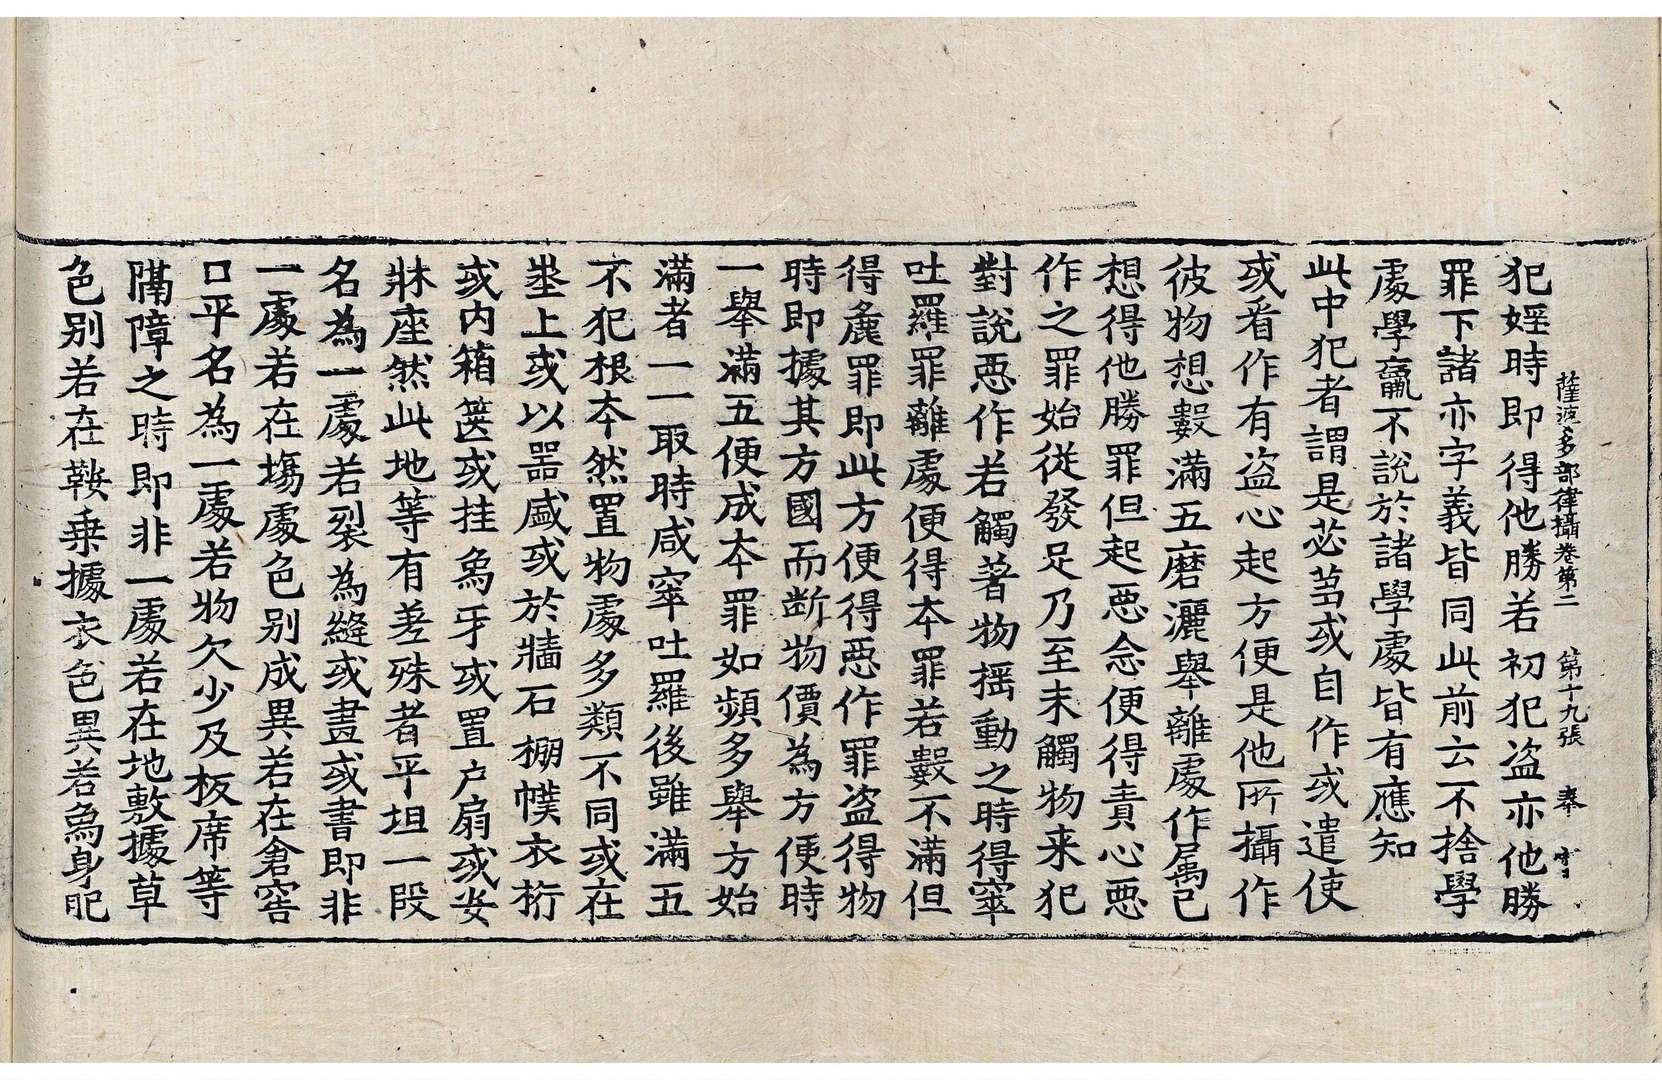 薩波多部律攝卷第二　第十九張　奉
犯婬時即得他勝若初犯盗亦他勝
罪下諸亦字義皆同此前云不捨學
處學羸不說於諸學處皆有應知
此中犯者謂是苾芻或自作或遣使
或看作有盗心起方便是他所攝作
彼物想數滿五磨灑舉離處作屬己
想得他勝罪但起惡念便得責心惡
作之罪始從發足乃至未觸物来犯
對說惡作若觸著物摇動之時得窣
吐羅罪離處便得本罪若數不滿但
得麁罪即此方便得惡作罪盗得物
時即據其方國而断物價為方便時
一舉滿五便成本罪如頻多舉方始
滿者一一取時咸窣吐羅後雖滿五
不犯根本然置物處多類不同或在
埊上或以噐盛或於牆石棚幞衣桁
或内箱篋或挂象牙或置户扇或安
牀座然此地等有差殊者平坦一段
名為一處若裂為縫或畫或書即非
一處若在塲處色别成異若在倉窖
口平名為一處若物欠少及板席等
隔障之時即非一處若在地敷據草
色别若在鞍乗據衣色異若象身肥